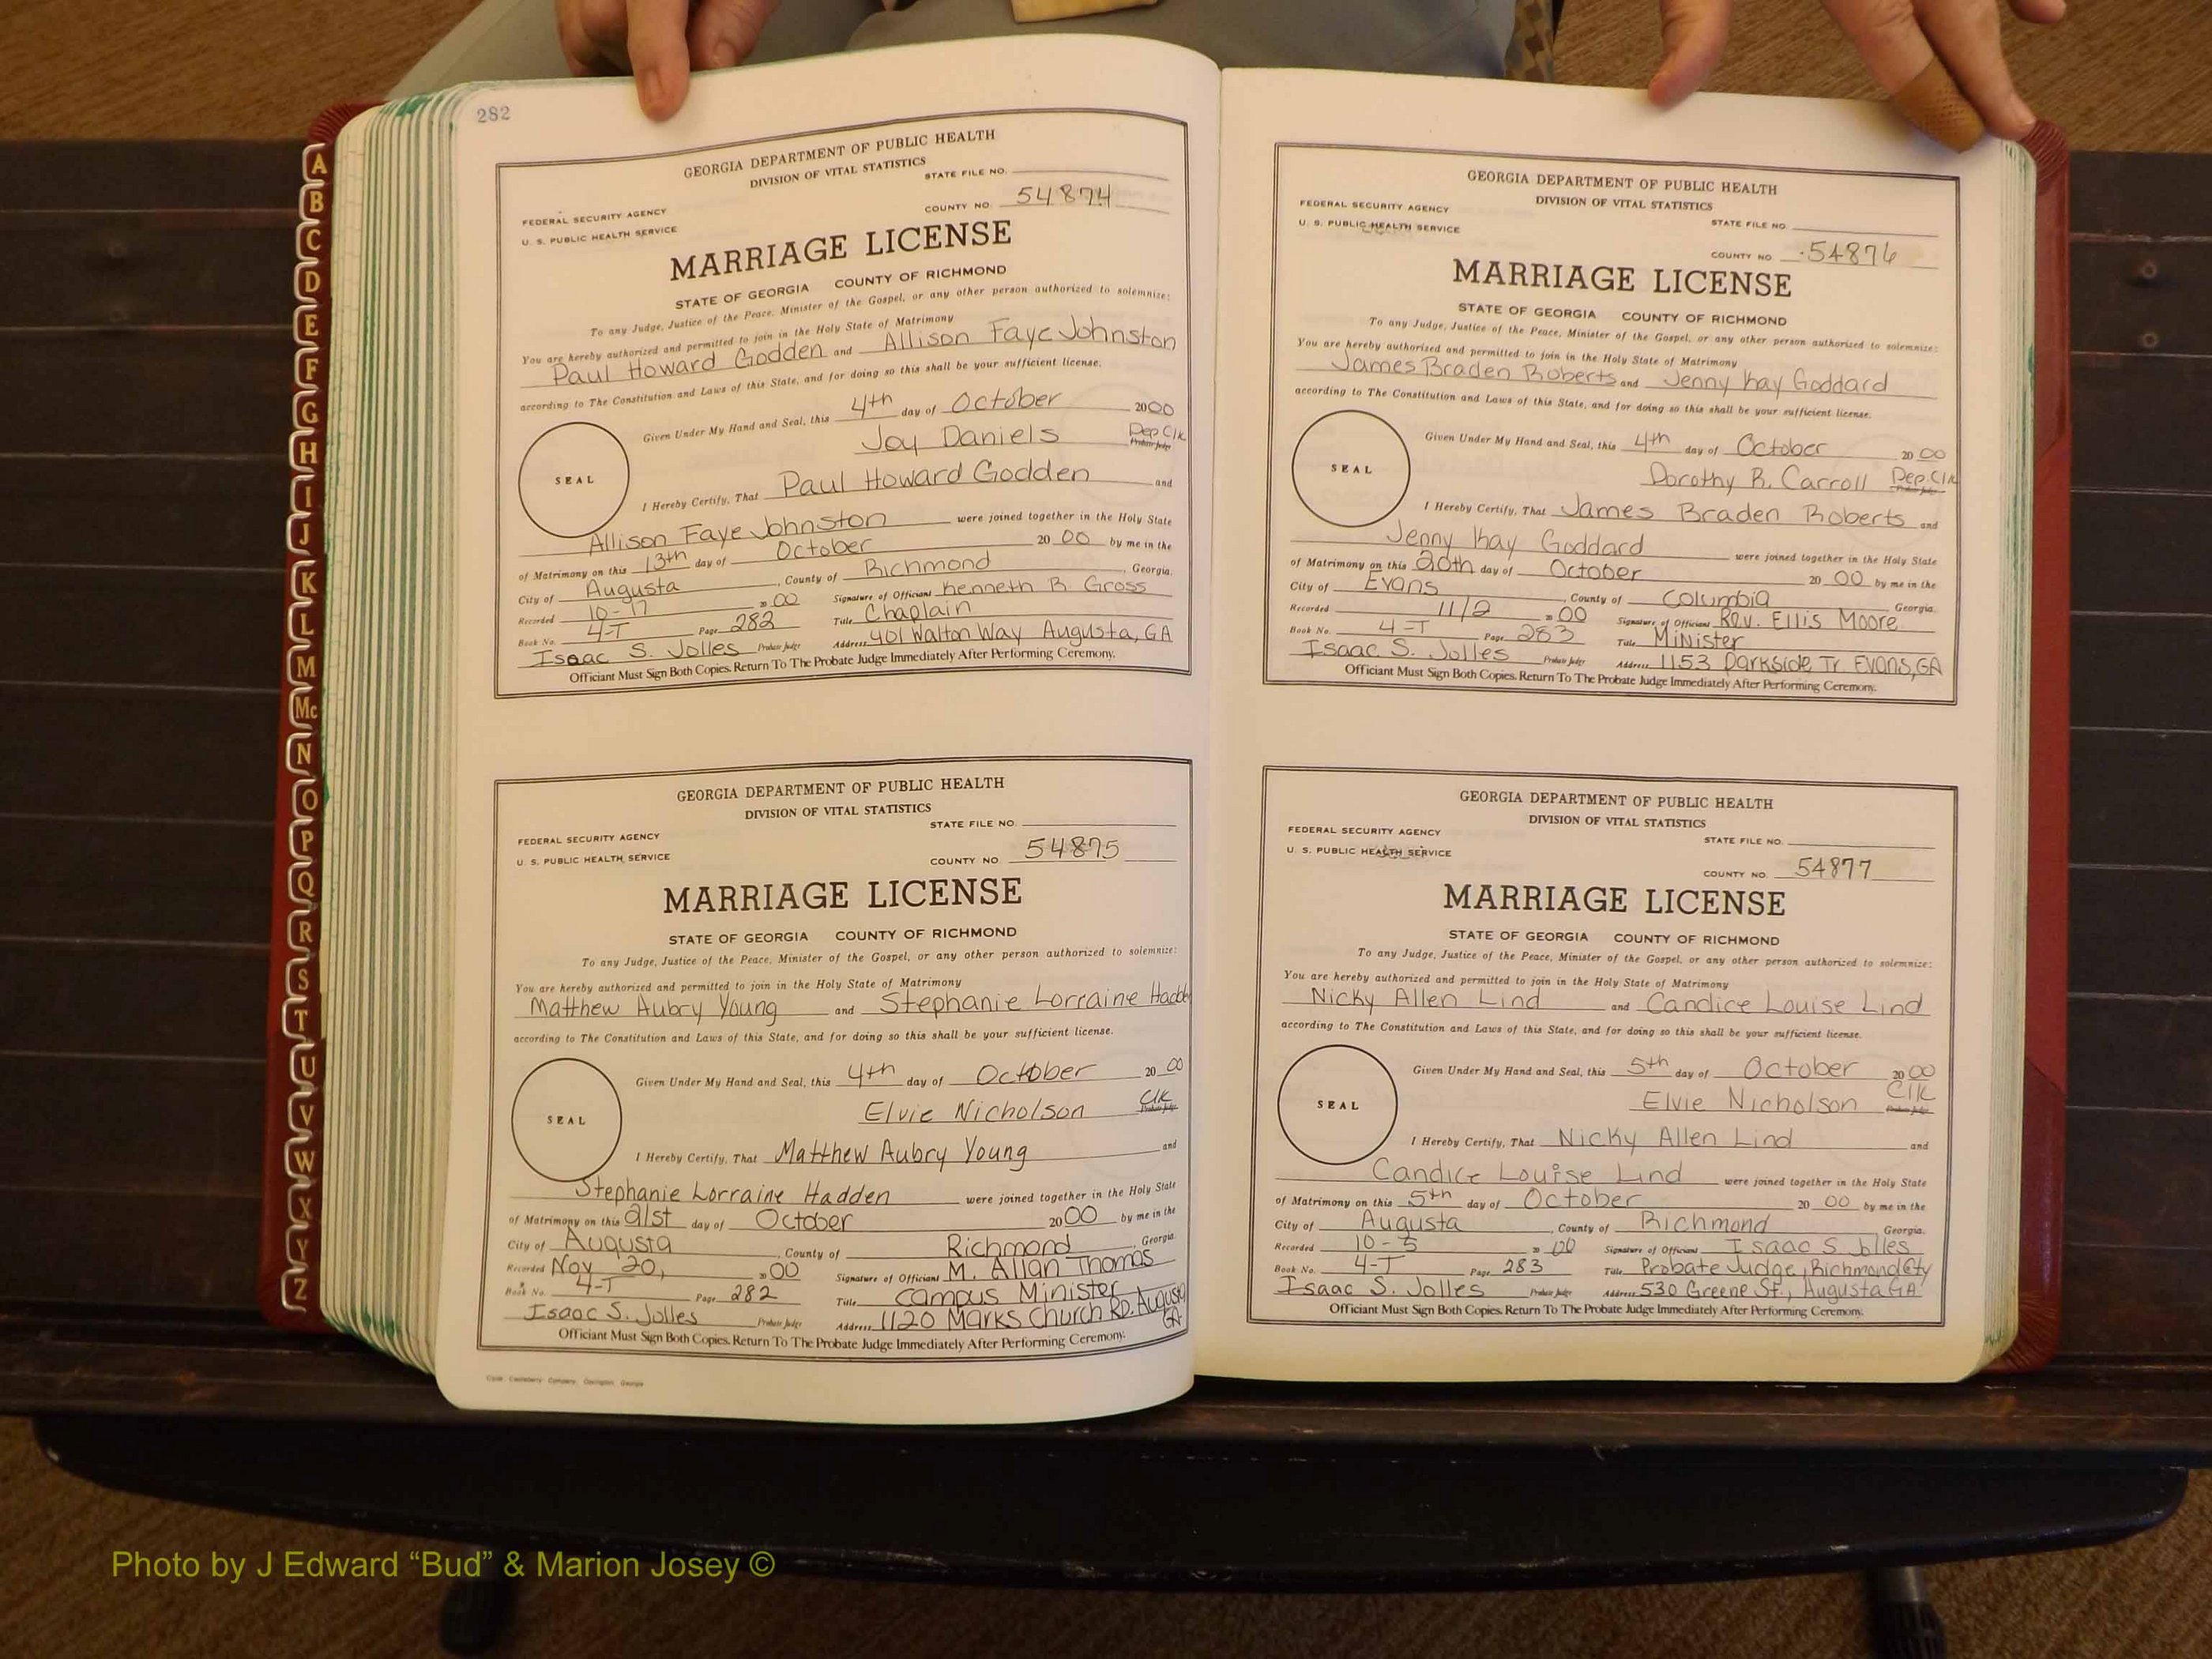 282
A
B
C
D
E
F
G
H
I
J
K
L
M
Mc
N
O
P
Q
R
S
T
U
V
W
X
Y
Z
GEORGIA DEPARTMENT OF PUBLIC HEALTH
DIVISION OF VITAL STATISTICS
STATE FILE NO.
FEDERAL SECURITY AGENCY
COUNTY NO. 54874
U. S. PUBLIC HEALTH SERVICE
MARRIAGE LICENSE
STATE OF GEORGIA COUNTY OF RICHMOND
To any Judge, Justice of the Peace, Minister of the Gospel, or any other person authorized to solemnize:
You are hereby authorized and permitted to join in the Holy State of Matrimony
Paul Howard Godden and Allison Faye Johnston
according to The Constitution and Laws of this State, and for doing so this shall be your sufficient license.
Given Under My Hand and Seal, this 4th day of October 2000
Joy Daniels Dep Clk Probate Judge
SEAL
I Hereby Certify, That Paul Howard Godden and
Allison Faye Johnston were joined together in the Holy State
of Matrimony on this 13th day of October 20 00 by me in the
City of Augusta, County of Richmond, Georgia.
Recorded 10-17 20 00 Signature of Officiant Kenneth B. Gross
Book No. 4-T Page 282 Title Chaplain
Isaac S. Jolles Probate Judge Address 401 Walton Way Augusta, GA
Officiant Must Sign Both Copies. Return To The Probate Judge Immediately After Performing Ceremony.
GEORGIA DEPARTMENT OF PUBLIC HEALTH
DIVISION OF VITAL STATISTICS
STATE FILE NO.
FEDERAL SECURITY AGENCY
COUNTY NO. 54875
U. S. PUBLIC HEALTH SERVICE
MARRIAGE LICENSE
STATE OF GEORGIA COUNTY OF RICHMOND
To any Judge, Justice of the Peace, Minister of the Gospel, or any other person authorized to solemnize:
You are hereby authorized and permitted to join in the Holy State of Matrimony
Matthew Aubry Young and Stephanie Lorraine
according to The Constitution and Laws of this State, and for doing so this shall be your sufficient license.
Given Under My Hand and Seal, this 4th day of October 20 00
Elvie Nicholson Clk Probate Judge
SEAL
I Hereby Certify, That Matthew Aubry Young and
Stephanie Lorraine Hadden were joined together in the Holy State
of Matrimony on this 21st day of October 20 00 by me in the
City of Augusta, County of Richmond, Georgia.
Recorded Nov 20, 20 00 Signature of Officiant M. Allan Thomas
Book No. 4-T Page 282 Title Campus Minister
Isaac S. Jolles Probate Judge Address 1120 Marks Church RD. Augusta GA
Officiant Must Sign Both Copies. Return To The Probate Judge Immediately After Performing Ceremony.
Company, Covington, Georgia
GEORGIA DEPARTMENT OF PUBLIC HEALTH
DIVISION OF VITAL STATISTICS
FEDERAL SECURITY AGENCY
STATE FILE NO.
U. S. PUBLIC HEALTH SERVICE
COUNTY NO. 54876
MARRIAGE LICENSE
STATE OF GEORGIA COUNTY OF RICHMOND
To any Judge, Justice of the Peace, Minister of the Gospel, or any other person authorized to solemnize:
You are hereby authorized and permitted to join in the Holy State of Matrimony
James Braden Roberts and Jenny Kay Goddard
according to The Constitution and Laws of this State, and for doing so this shall be your sufficient license.
Given Under My Hand and Seal, this 4th day of October 20 00
Dorothy R. Carroll Dep. Clk Probate Judge
SEAL
I Hereby Certify, That James Braden Roberts and
Jenny Kay Goddard were joined together in the Holy State
of Matrimony on this 20th day of October 20 00 by me in the
City of Evans, County of Columbia Georgia.
Recorded 11/2 20 00 Signature of Officiant Rev. Ellis Moore
Book No. 4-T Page 283 Title Minister
Isaac S. Jolles Probate Judge Address 1153 Parkside Tr. Evans, GA
Officiant Must Sign Both Copies. Return To The Probate Judge Immediately After Performing Ceremony.
GEORGIA DEPARTMENT OF PUBLIC HEALTH
DIVISION OF VITAL STATISTICS
FEDERAL SECURITY AGENCY
STATE FILE NO.
U. S. PUBLIC HEALTH SERVICE
COUNTY NO. 54877
MARRIAGE LICENSE
STATE OF GEORGIA COUNTY OF RICHMOND
To any Judge, Justice of the Peace, Minister of the Gospel, or any other person authorized to solemnize:
You are hereby authorized and permitted to join in the Holy State of Matrimony
Nicky Allen Lind and Candice Louise Lind
according to The Constitution and Laws of this State, and for doing so this shall be your sufficient license.
Given Under My Hand and Seal, this 5th day of October 20 00
Elvie Nicholson Clk Probate Judge
SEAL
I Hereby Certify, That Nicky Allen Lind and
Candice Louise Lind were joined together in the Holy State
of Matrimony on this 5th day of October 20 00 by me in the
City of Augusta, County of Richmond Georgia.
Recorded 10-5 20 00 Signature of Officiant Isaac S Jolles
Book No. 4-T Page 283 Title Probate Judge, Richmond Cty
Isaac S. Jolles Probate Judge Address 530 Greene St., Augusta GA
Officiant Must Sign Both Copies. Return To The Probate Judge Immediately After Performing Ceremony.
Photo by J Edward “Bud” & Marion Josey ©